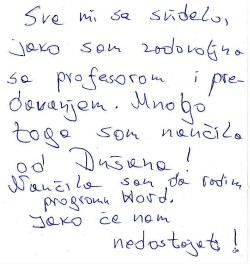 Sve mi sa svidelo,
jako som zadovoljna
sa profesorom i pre-
davanjem. Mnogo
toga som naučila
od Dušana!
Naučila som da radim
programu Word.
Jako će nam
nedostajati!